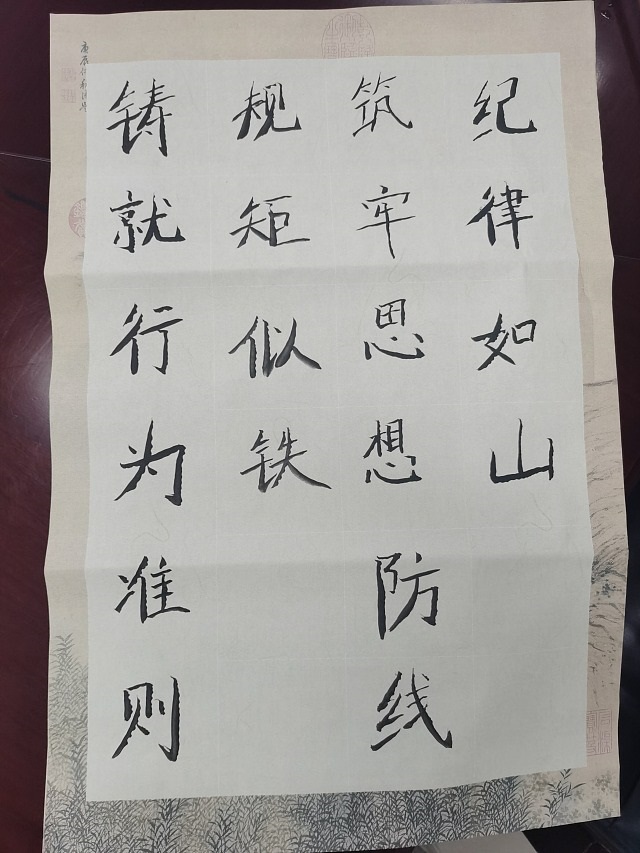 纪律如山
筑牢思想防线
规矩似铁
铸就行为准则